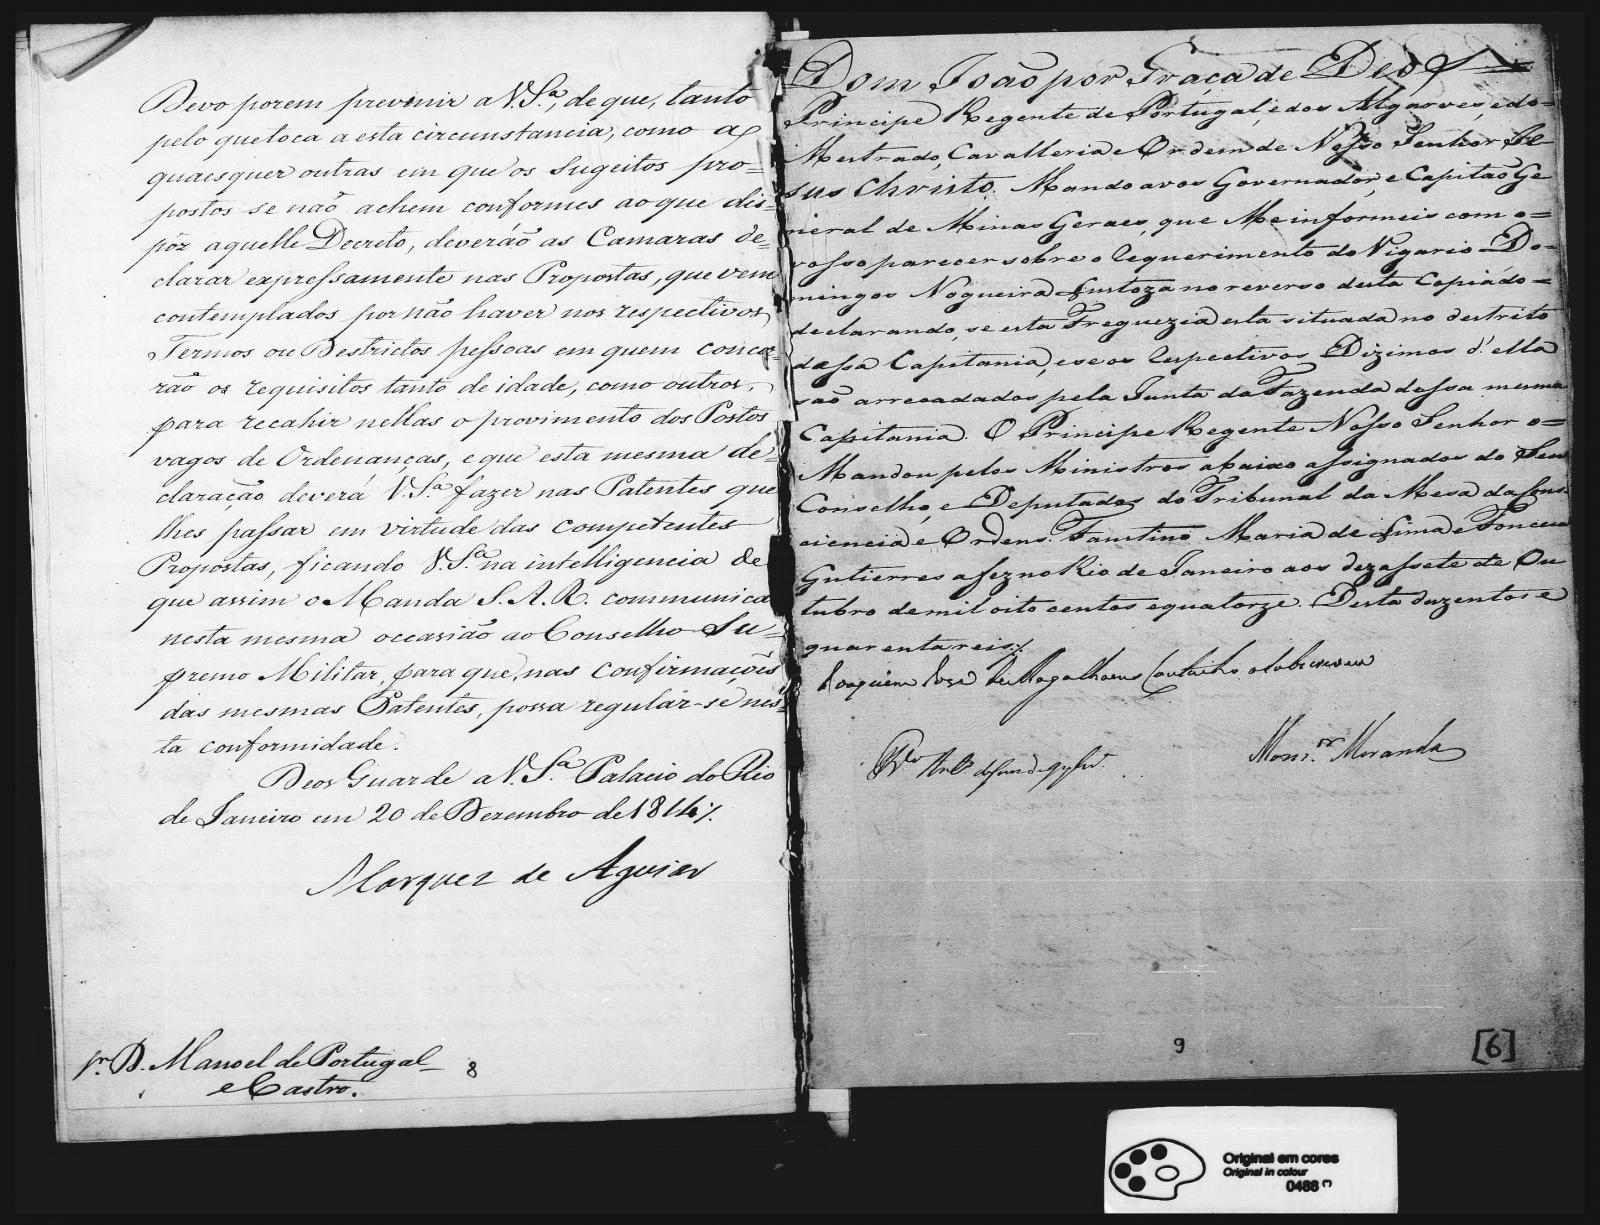 Devo porem prevenir a V. S.ª, de que, tanto
pelo que toca a esta circunstancia, como a
quaesquer outras em que os Sugeitos pro=
postos se não achem conformes ao que dis=
pôz aquelle Decreto, deveráõ as Camaras de=
clarar expressamente nas Propostas, que vem
contemplados por não haver nos respectivos
Termos ou Destrictos pessoas em quem concor=
rão os requisitos tanto de idade, como outros,
para recahir nellas o provimento dos Postos
vagos de Ordenanças, e que esta mesma de=
claração deverá V. S.ª fazer nas Patentes que
lhes passar em virtude das competentes
Propostas, ficando V. S.ª na intelligencia de
que assim o Manda S. A. R. communicar
nesta mesma occasião ao Conselho Su=
premo Militar, para que, nas confirmações
das mesmas Patentes, possa regular-se nes=
ta conformidade.
Deos Guarde a V. S.ª Palacio do Rio
de Janeiro em 20 de Dezembro de 1814
Marquez de Aguiar
Sr. D. Manoel de Portugal
e Castro.
8
Dom João por Graça de Deos
Principe Regente de Portugal, e dos Algarves, e do=
Mestrado, Cavalleria e Ordem de Nosso Senhor Je
sus Christo. Mando a vos Governador, e Capitão Ge
neral de Minas Geraes, que Me informeis com o=
vosso parecer sobre o requerimento do Vigario Do=
mingos Nogueira no reverso desta Copiádo=
declarando, se esta Freguezia esta situada no destrito
dessa Capitania, e se os respectivos Dizimos d'ella
são arrecadados pela Junta da Fazenda dessa mesma
Capitania. O Principe Regente Nosso Senhor o=
Mandou pelos Ministros abaixo assignados do Seu
Conselho, e Deputados do Tribunal da Mesa da Cons
ciencia e Ordens. Faustino Maria de Lima e Fonceca
Gutierres a fez no Rio de Janeiro aos dezassete de Ou
tubro de mil oito centos e quatorze. Desta duzentos e
quarenta reis
Joaquim José de Magalhaens Coutinho o sobescreveu
Mons.or Miranda
9
[6]
Original em cores
Original in colour
0488